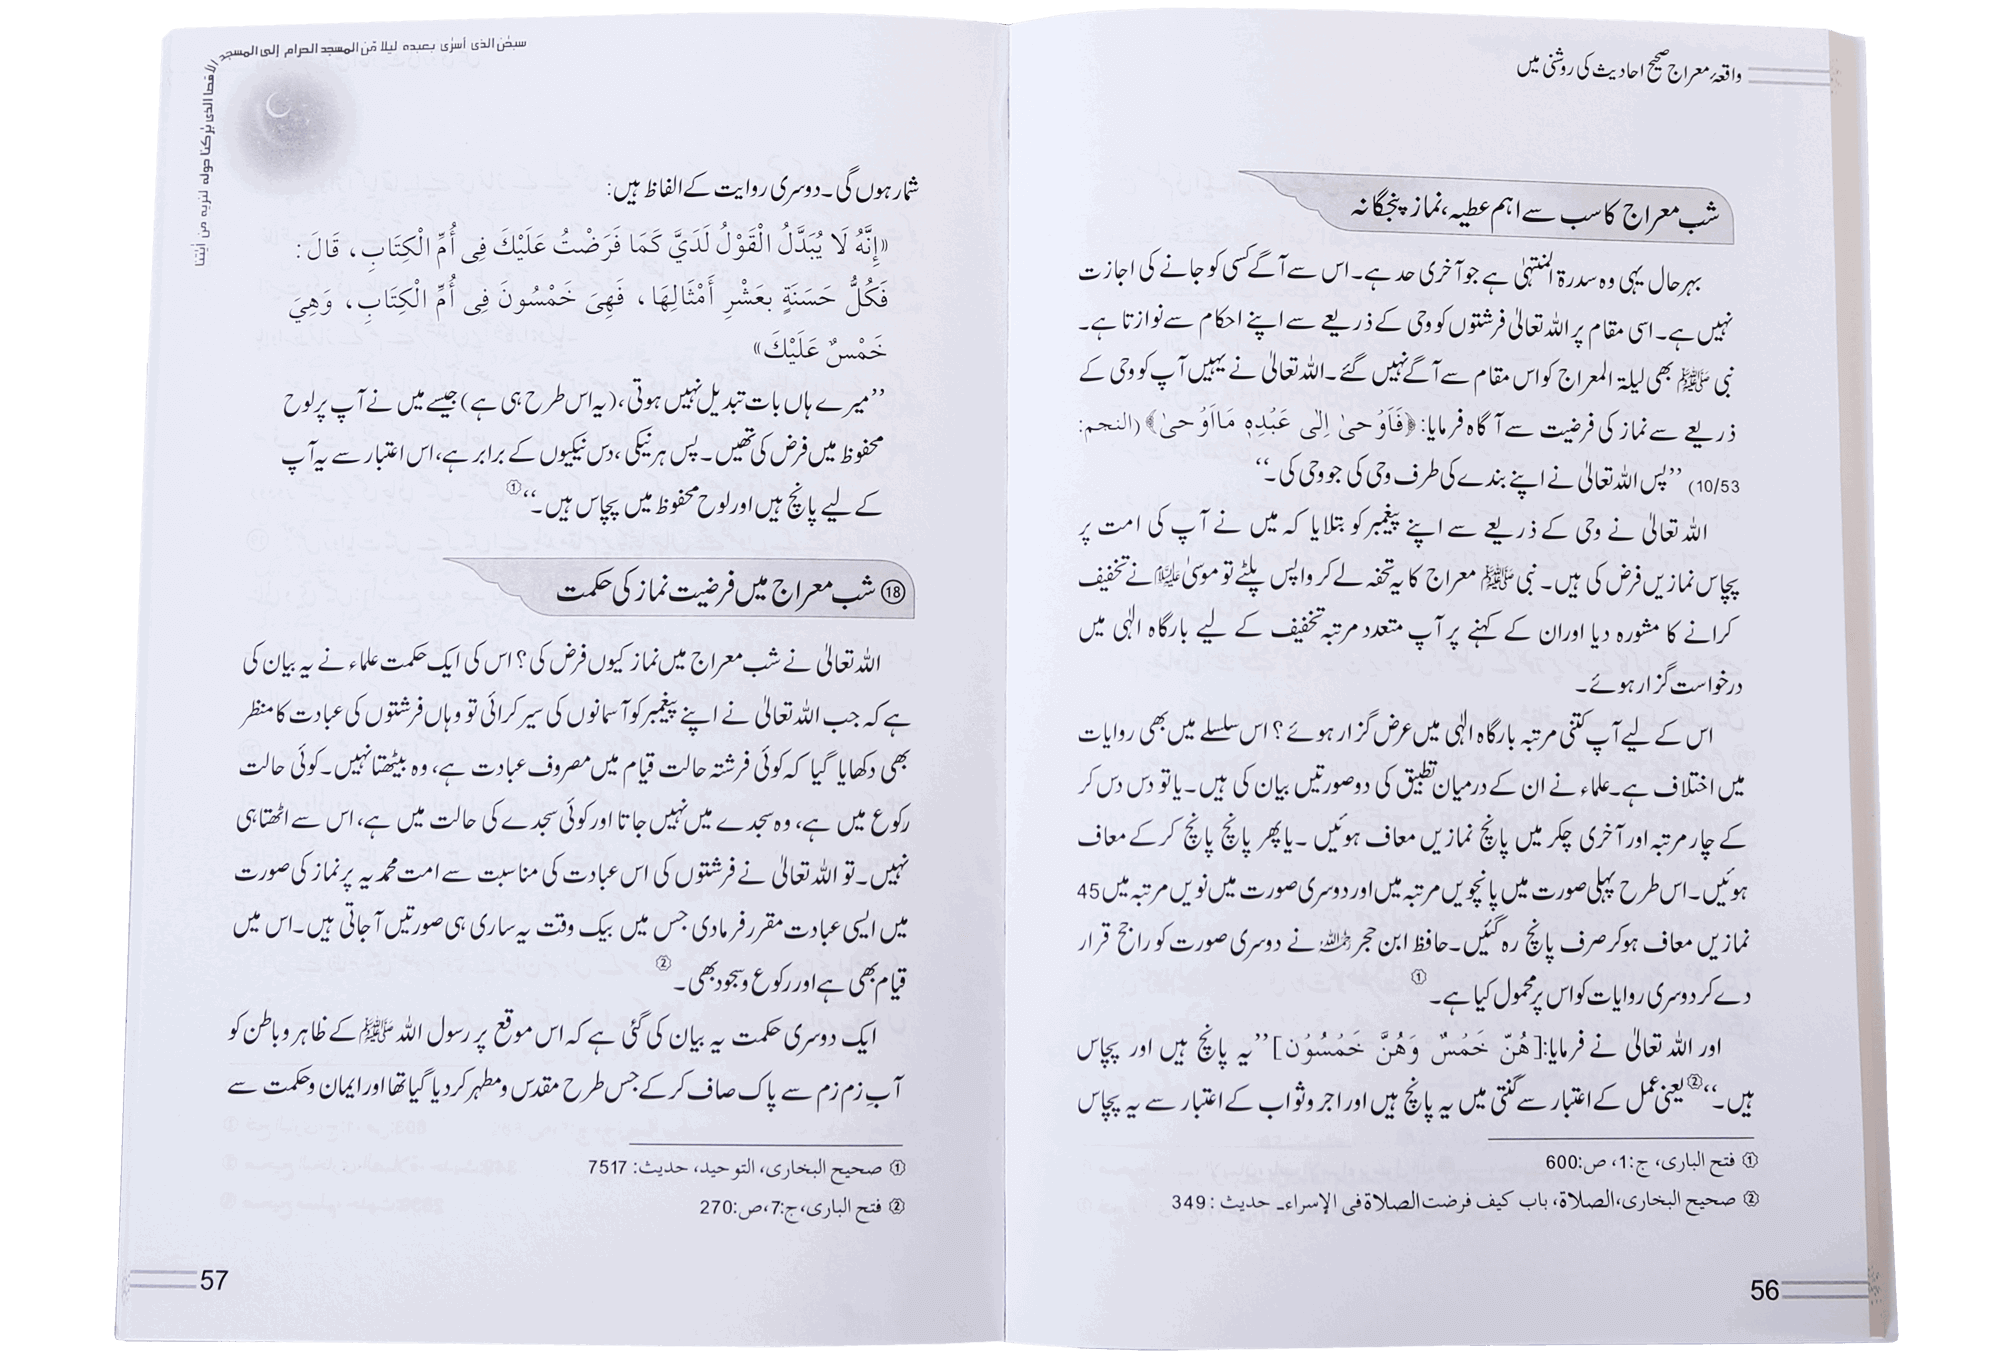 واقعۂ معراج صحیح احادیث کی روشنی میں
شب معراج کا سب سے اہم عطیہ، نماز پنجگانہ
بہر حال یہی وہ سدرۃ المنتہیٰ ہے جو آخری حد ہے۔ اس سے آگے کسی کو جانے کی اجازت
نہیں ہے۔ اسی مقام پر اللہ تعالیٰ فرشتوں کو وحی کے ذریعے سے اپنے احکام سے نوازتا ہے۔
نبی ﷺ بھی لیلۃ المعراج کو اس مقام سے آگے نہیں گئے۔ اللہ تعالیٰ نے یہیں آپ کو وحی کے
ذریعے سے نماز کی فرضیت سے آگاہ فرمایا: ﴿فَاَوْحیٰ اِلیٰ عَبْدِہٖ مَااَوْحیٰ﴾ (النجم:
10/53) ’’پس اللہ تعالیٰ نے اپنے بندے کی طرف وحی کی جو وحی کی۔‘‘
اللہ تعالیٰ نے وحی کے ذریعے سے اپنے پیغمبر کو بتلایا کہ میں نے آپ کی امت پر
پچاس نمازیں فرض کی ہیں۔ نبی ﷺ معراج کا یہ تحفہ لے کر واپس پلٹے تو موسیٰ علیہ السلام نے تخفیف
کرانے کا مشورہ دیا اور ان کے کہنے پر آپ متعدد مرتبہ تخفیف کے لیے بارگاہ الٰہی میں
درخواست گزار ہوئے۔
اس کے لیے آپ کتنی مرتبہ بارگاہ الٰہی میں عرض گزار ہوئے؟ اس سلسلے میں بھی روایات
میں اختلاف ہے۔ علماء نے ان کے درمیان تطبیق کی دو صورتیں بیان کی ہیں۔ یا تو دس دس کر
کے چار مرتبہ اور آخری چکر میں پانچ نمازیں معاف ہوئیں۔ یا پھر پانچ پانچ کر کے معاف
ہوئیں۔ اس طرح پہلی صورت میں پانچویں مرتبہ میں اور دوسری صورت میں نویں مرتبہ میں 45
نمازیں معاف ہو کر صرف پانچ رہ گئیں۔ حافظ ابن حجر رحمہ اللہ نے دوسری صورت کو راجح قرار
دے کر دوسری روایات کو اس پر محمول کیا ہے۔ ①
اور اللہ تعالیٰ نے فرمایا: [هُنَّ خَمْسٌ وَهُنَّ خَمْسُوْن] ’’یہ پانچ ہیں اور پچاس
ہیں۔‘‘② یعنی عمل کے اعتبار سے گنتی میں یہ پانچ ہیں اور اجر و ثواب کے اعتبار سے یہ پچاس
① فتح الباری، ج:1، ص:600
② صحیح البخاری، الصلاة، باب کیف فرضت الصلاة فی الإسراء۔ حدیث : 349
56
سبحٰن الذی أسرٰی بعبدہ لیلا مّن المسجد الحرام إلی المسجد الأقصا الذی بٰرکنا حولہ لنریہ من اٰیٰتنا
شمار ہوں گی۔ دوسری روایت کے الفاظ ہیں:
«إِنَّهُ لَا يُبَدَّلُ الْقَوْلُ لَدَيَّ كَمَا فَرَضْتُ عَلَيْكَ فِی أُمِّ الْكِتَابِ، قَالَ:
فَكُلُّ حَسَنَةٍ بِعَشْرِ أَمْثَالِهَا، فَهِیَ خَمْسُونَ فِی أُمِّ الْكِتَابِ، وَهِيَ
خَمْسٌ عَلَيْكَ»
’’میرے ہاں بات تبدیل نہیں ہوتی، (یہ اس طرح ہی ہے) جیسے میں نے آپ پر لوح
محفوظ میں فرض کی تھیں۔ پس ہر نیکی، دس نیکیوں کے برابر ہے، اس اعتبار سے یہ آپ
کے لیے پانچ ہیں اور لوح محفوظ میں پچاس ہیں۔‘‘①
⑱ شب معراج میں فرضیت نماز کی حکمت
اللہ تعالیٰ نے شب معراج میں نماز کیوں فرض کی؟ اس کی ایک حکمت علماء نے یہ بیان کی
ہے کہ جب اللہ تعالیٰ نے اپنے پیغمبر کو آسمانوں کی سیر کرائی تو وہاں فرشتوں کی عبادت کا منظر
بھی دکھایا گیا کہ کوئی فرشتہ حالت قیام میں مصروف عبادت ہے، وہ بیٹھتا نہیں۔ کوئی حالت
رکوع میں ہے، وہ سجدے میں نہیں جاتا اور کوئی سجدے کی حالت میں ہے، اس سے اٹھتا ہی
نہیں۔ تو اللہ تعالیٰ نے فرشتوں کی اس عبادت کی مناسبت سے امت محمدیہ پر نماز کی صورت
میں ایسی عبادت مقرر فرمادی جس میں بیک وقت یہ ساری ہی صورتیں آ جاتی ہیں۔ اس میں
قیام بھی ہے اور رکوع و سجود بھی۔ ②
ایک دوسری حکمت یہ بیان کی گئی ہے کہ اس موقع پر رسول اللہ ﷺ کے ظاہر و باطن کو
آبِ زم زم سے پاک صاف کر کے جس طرح مقدس و مطہر کر دیا گیا تھا اور ایمان و حکمت سے
① صحیح البخاری، التوحید، حدیث: 7517
② فتح الباری، ج:7، ص:270
57